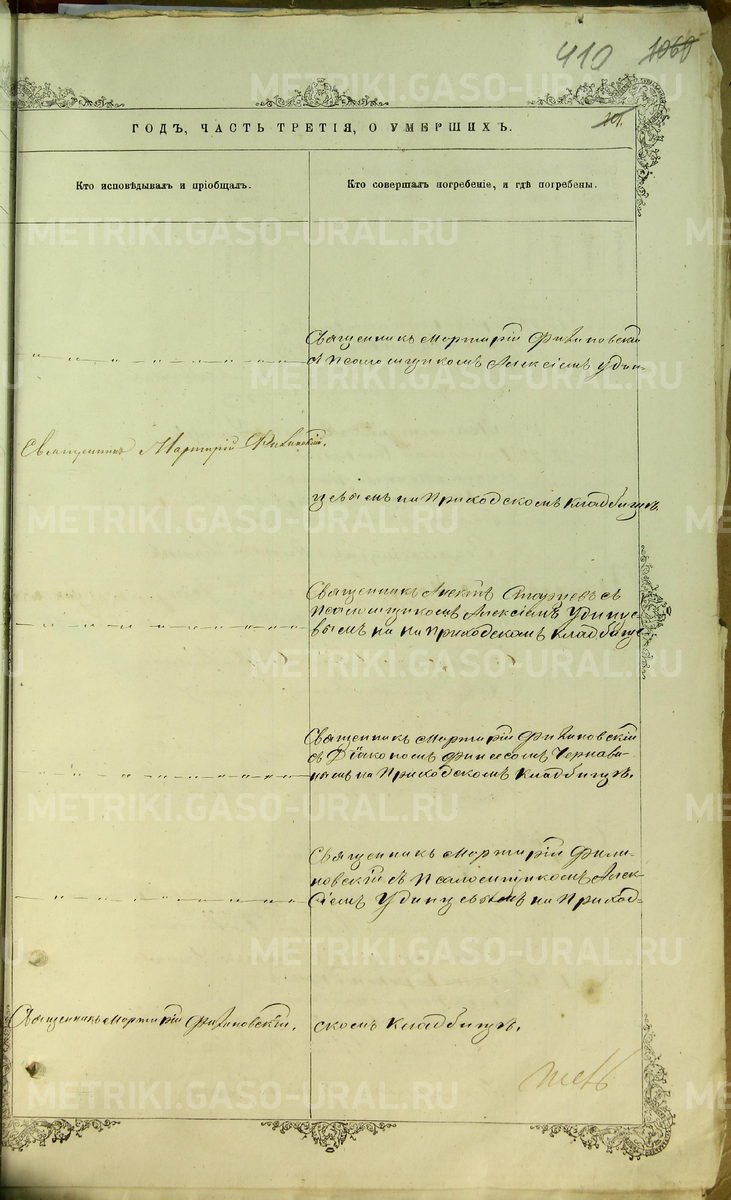 410 1060
101.
ГОДЪ, ЧАСТЬ ТРЕТІЯ, О УМЕРШИХЪ.
Кто исповѣдывалъ и пріобщалъ.
Кто совершалъ погребеніе, и гдѣ погребены.
Священникъ Мартирій Филиновскій
съ Псаломщикомъ Алексіемъ Удин-
Священникъ Мартирій Филиновскій.
цевымъ на Приходскомъ кладбищѣ.
Священникъ съ
Псаломщикомъ Алексіемъ Удинце-
вымъ на на Приходскомъ кладбище
Священникъ Мартирій Филиновскій
съ Діакономъ Финеесомъ Чернави-
нымъ на Приходскомъ кладбищѣ.
Священникъ Мартирій Фили-
новскій съ Псаломщикомъ Алек-
сіемъ Удинцевымъ на Приход-
Священникъ Мартирій Филиновскій.
скомъ кладбищѣ.
METRIKI.GASO-URAL.RU